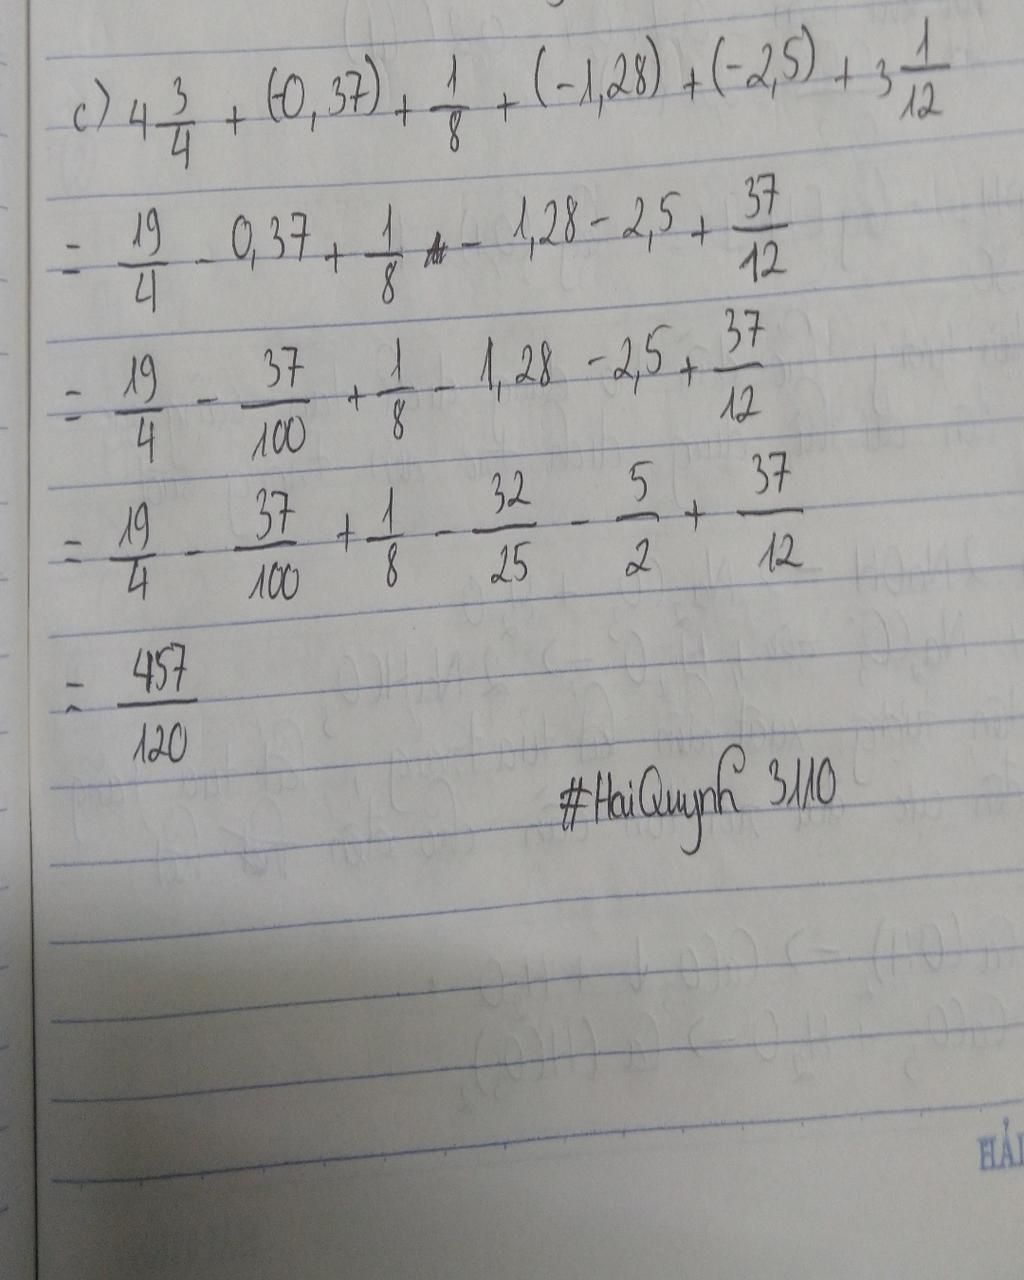 c) 4 3/4 + (-0,37) + 1/8 + (-1,28) + (-2,5) + 3 1/12
= 19/4 - 0,37 + 1/8 - 1,28 - 2,5 + 37/12
= 19/4 - 37/100 + 1/8 - 1,28 - 2,5 + 37/12
= 19/4 - 37/100 + 1/8 - 32/25 - 5/2 + 37/12
= 457/120
#HaiQuynh 3110
HẢI